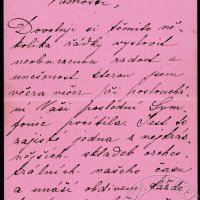 Dovoluji si těmito ně-
kolika řádky vysloviti
neobmezenou radost a
umělecký
včera večer při poslouchá-
ní Vaší poslední Sym-
fonie pocítila. Jest to
zajisté jedna z nejkrás-
nějších skladeb orches-
trálních našeho času
a unáší obdivem každé-